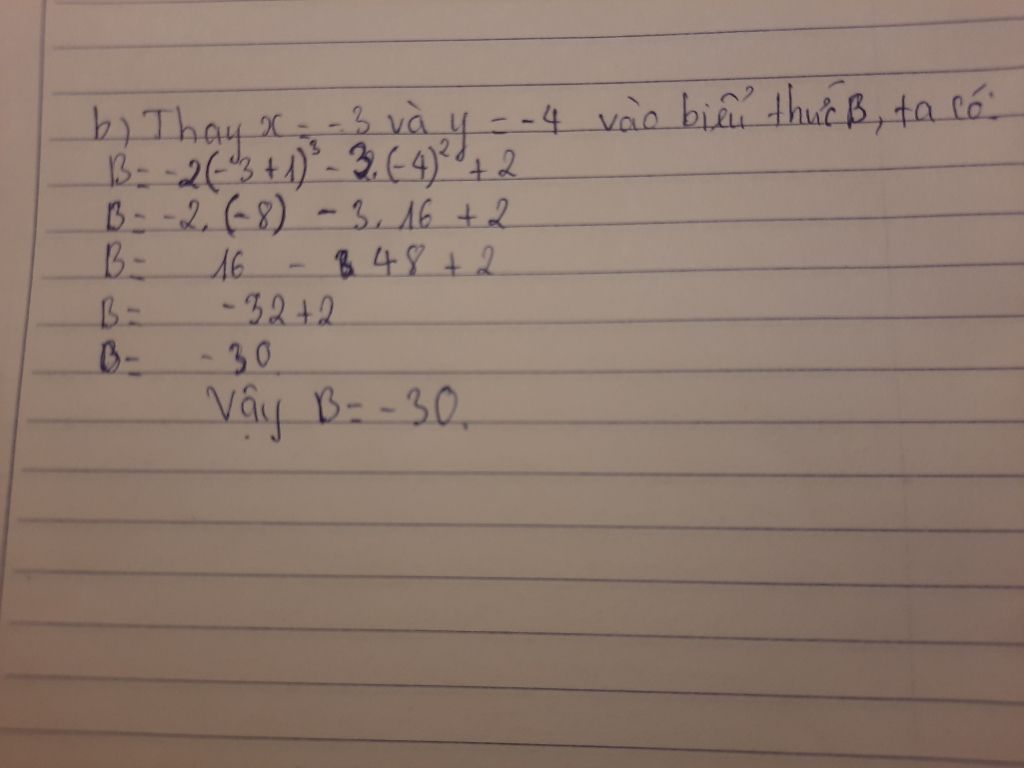 b) Thay x = -3 và y = -4 vào biểu thức B, ta có:
B = -2(-3+1)³ - 3.(-4)² + 2
B = -2.(-8) - 3.16 + 2
B = 16 - 48 + 2
B = -32+2
B = -30
Vậy B = -30.